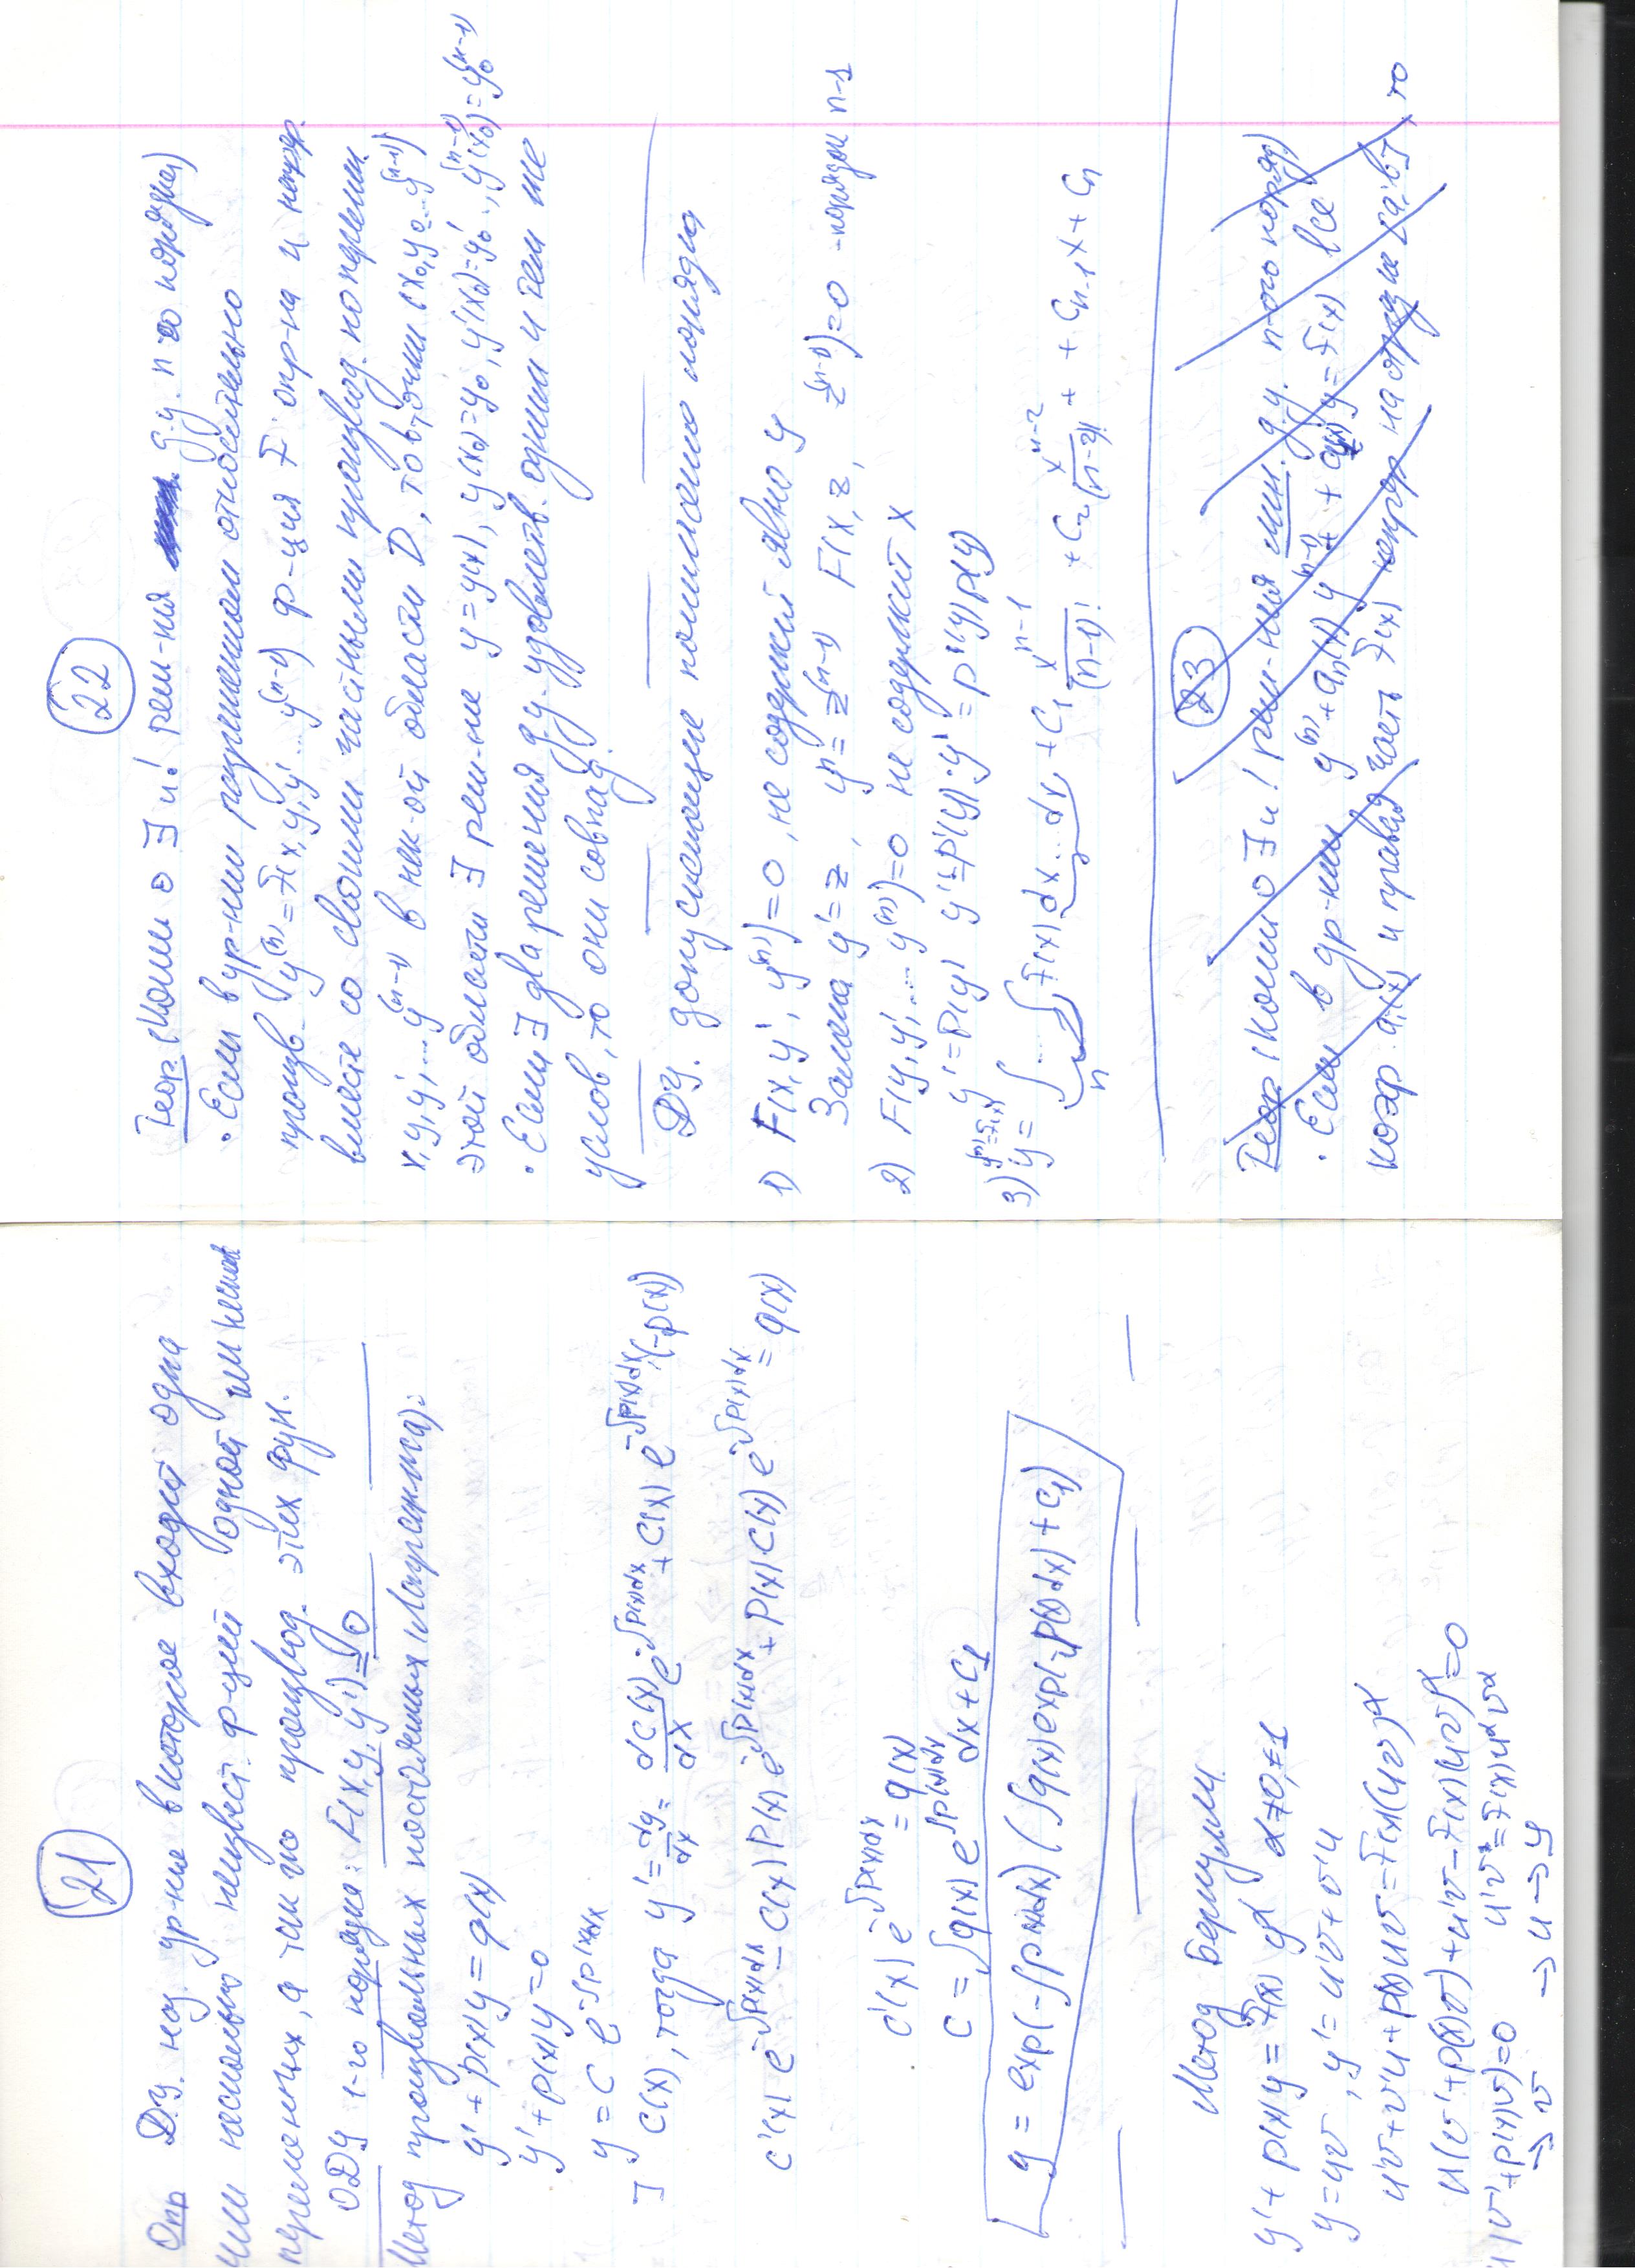 21
Опр Д.у. наз. ур-ние в которое входит одна
или несколько неизвест. ф-ций одной или неск
переменных, а так же производ. этих фун.
ОДУ 1-го порядка: F(x,y,y')=0
Метод произвольных постоянных (Лагранжа):
y' + p(x)y = q(x)
y' + p(x)y = 0
y = C e^{-∫p(x)dx}
] C(x), тогда y' = dy/dx = dC(x)/dx e^{-∫p(x)dx} + C(x) e^{-∫p(x)dx}·(-p(x))
C'(x) e^{-∫p(x)dx} - C(x) P(x) e^{-∫p(x)dx} + P(x) C(x) e^{-∫p(x)dx} = q(x)
C'(x) e^{-∫p(x)dx} = q(x)
C = ∫q(x) e^{∫p(x)dx} dx + C1
y = exp(-∫p(x)dx) (∫q(x) exp(∫p(x)dx) + C1)
Метод Бернулли
y' + p(x)y = F(x) y^α α≠0,≠1
y = uv, y' = u'v + v'u
u'v + v'u + p(x)uv = F(x)(uv)^α
u(v' + p(x)v) + u'v - F(x)(uv)^α = 0
u(v' + p(x)v) = 0 u'v = F(x)u^α v^α
→ v → u → y
22
Теор (Коши о ∃ и! реш-ния д.у. n-го порядка)
· Если в ур-нии разрешимом относительно
произв. y^(n) = F(x,y,y'...y^(n-1)) ф-ция F опр-на и непр.
вместе со своими частными производ. по перемен.
x,y,y',...y^(n-1) в нек-ой области D, то в точки (x0,y0...y0^(n-1))
этой области ∃ реш-ие y = y(x), y(x0)=y0, y'(x0)=y0'..., y^(n-1)(x0)=y0^(n-1)
· Если ∃ два решения д.у. удовлетв. одним и тем же
услов, то они совпад.
Д.У. допускающие понижению порядка
1) F(x,y',y^(n))=0, не содержит явно y
Замена y'=z, y^n = z^(n-1) F(x,z, z^(n-1))=0 - порядок n-1
2) F(y,y',...y^(n))=0 не содержит x
y' = P(y) y''=P'(y)·y' = p'(y)p(y)
3) y^(n)=F(x)
y = ∫...∫F(x)dx...dx + C1 x^{n-1}/(n-1)! + C2 x^{n-2}/(n-2)! + + C_{n-1}x + Cn
n
23
Теор (Коши о ∃ и! реш-ния лин. д.у. n-ого поряд)
· Если в ур-нии y^(n) + a1(x) y^(n-1) + an(x)y = F(x) все
коэф. ai(x) и правая часть F(x) непрер на отрезке [a;b], то